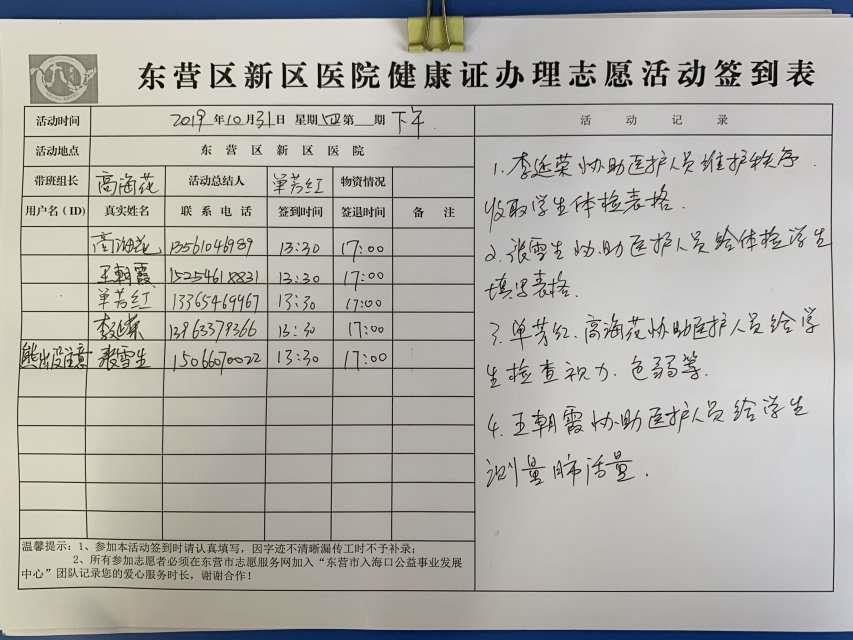 东营区新区医院健康证办理志愿活动签到表
活动时间 2019年10月31日 星期四第__期 下午
活动地点 东营区新区医院
带班组长 高海花 活动总结人 单芳红 物资情况
用户名(ID) 真实姓名 联系电话 签到时间 签退时间 备注
高海花 13561046989 13:30 17:00
王朝霞 15254618831 13:30 17:00
单芳红 13365469967 13:30 17:00
李延荣 13963379366 13:30 17:00
熊出没注意 张雪生 15066070022 13:30 17:00
温馨提示:1、参加本活动签到时请认真填写,因字迹不清晰漏传工时不予补录;
2、所有参加志愿者必须在东营市志愿服务网加入“东营市入海口公益事业发展
中心”团队记录您的爱心服务时长,谢谢合作!
活动记录
1.李延荣协助医护人员维护秩序.
收取学生体检表格.
2.张雪生协助医护人员给体检学生
填写表格.
3.单芳红、高海花协助医护人员给学
生检查视力.色弱等.
4.王朝霞协助医护人员给学生
测量肺活量.